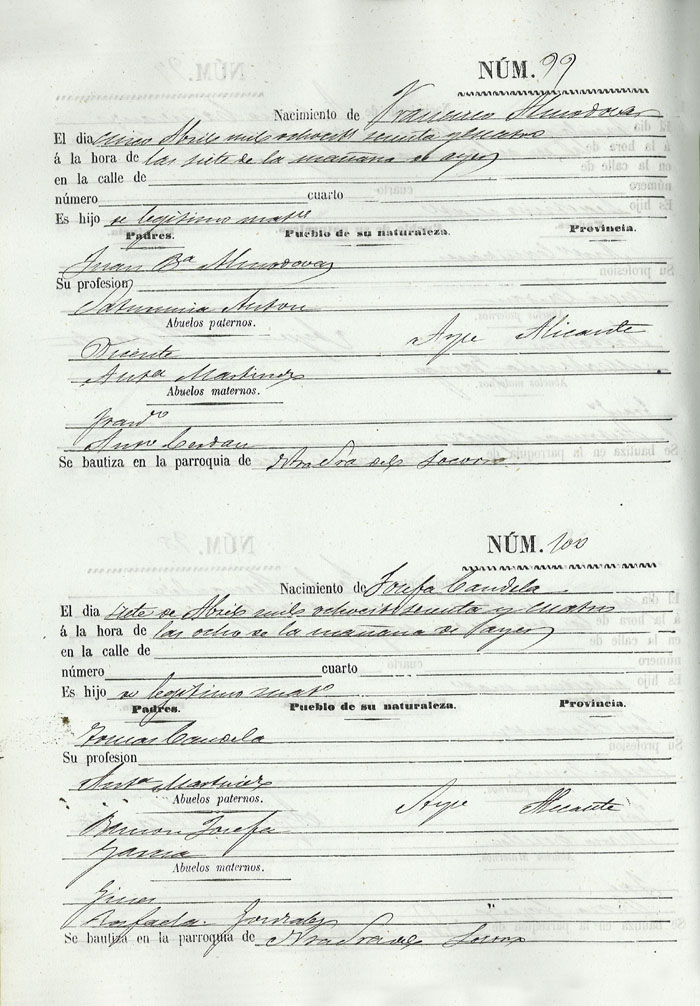 NÚM. 99
Nacimiento de Francisco Almodovar
El dia cinco Abril mil ochocits setenta y cuatro
á la hora de las siete de la mañana de ayer
en la calle de
número cuarto
Es hijo de legitimo matr
Padres. Pueblo de su naturaleza. Provincia.
Juan Bta Almodovar
Su profesion
Saturnina Anton
Abuelos paternos.
Vicente Aspe Alicante
Anta Martinez
Abuelos maternos.
Franco
Anta Cerdan
Se bautiza en la parroquia de Ntra Sra del Socorro
NÚM. 100
Nacimiento de Josefa Candela
El dia siete de Abril mil ochocits setenta y cuatro
á la hora de las ocho de la mañana de ayer
en la calle de
número cuarto
Es hijo de legitimo mato
Padres. Pueblo de su naturaleza. Provincia.
Tomas Candela
Su profesion
Anta Martinez
Abuelos paternos. Aspe Alicante
Ramon Josefa
Garcia
Abuelos maternos.
Gines
Rafaela Gonzalez
Se bautiza en la parroquia de Ntra Sra del Socorro